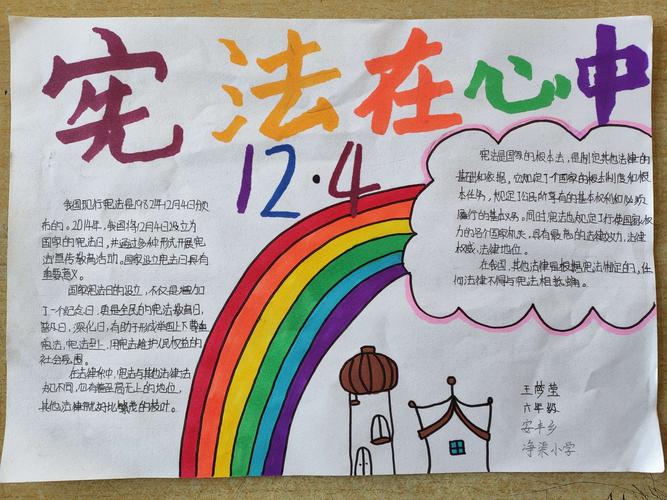 宪法在心中
12·4
我国现行宪法是1982年12月4日颁
布的。2014年,我国将12月4日设立为
国家的宪法日,并通过多种形式开展宪
法宣传教育活动。国家设立宪法日具有
重要意义。
国家宪法日的设立,不仅是增加
了一个纪念日,更是全民的宪法教育日、
普及日、深化日,有助于形成举国上下尊重
宪法、宪法至上、用宪法维护人民权益的
社会氛围。
在法律体中,宪法与其他法律法
不同,它有着至高无上的地位,
其他法律就好比繁茂的枝叶。
宪法是国家的根本法,是制定其他法律的
基础和依据,它规定了国家的根本制度和根
本任务,规定了公民所享有的基本权利和必须
履行的基本义务。同时宪法也规定了行使国家权
力的各个国家机关,具有最高的法律效力、法律
权威、法律地位。
在我国,其他法律是根据宪法制定的,任
何法律不得与宪法相抵触。
王梦莹
六年级
安丰乡
净渠小学